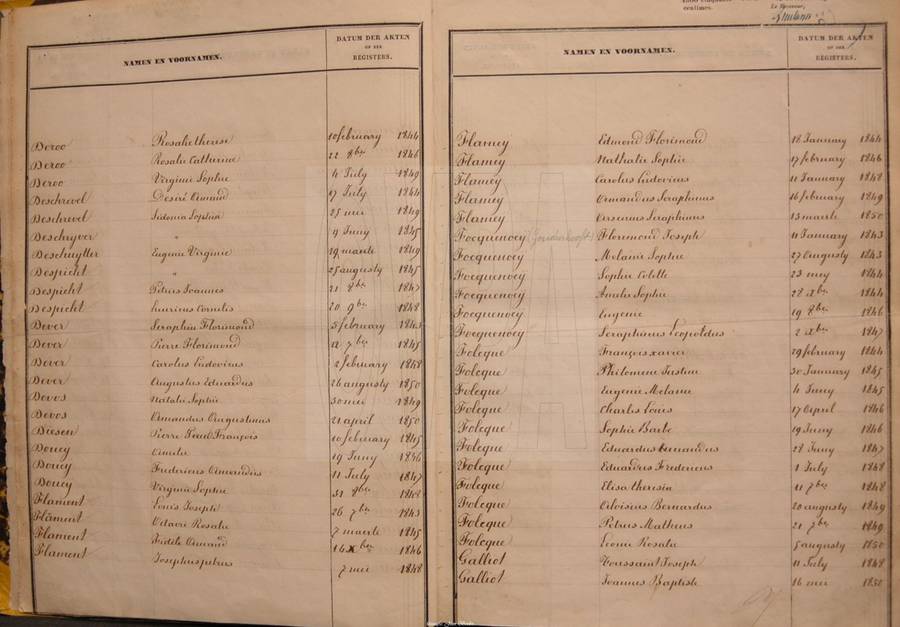 centimes.
NAMEN EN VOORNAMEN.
DATUM DER AKTEN
OF DER
REGISTERS.
Deroo Rosalie therese 10 february 1844
Deroo Rosalie Catherine 22 8ber 1846
Deroo Virginie Sophie 4 July 1849
Deschrevel Désiré Armand 17 July 1844
Deschrevel Sidonia Sophia 25 mei 1849
Deschryver " 9 Juny 1845
Deschuytter Eugenie Virginie 19 maarte 1849
Despicht " 25 augusty 1845
Despicht Petrus Joannes 21 8ber 1847
Despicht Cornelis 20 9ber 1848
Dever Seraphin Florimond 5 february 1843
Dever Pierre Florimond 12 7ber 1845
Dever Carolus Ludovicus 2 february 1848
Dever Augustus Eduardus 26 augusty 1850
Devos Natalie Sophie 30 mei 1849
Devos Armandus Augustinus 21 april 1850
Diesen Pierre François 10 february 1845
Doucy Amelie 19 Juny 1846
Doucy Fredericus Armandus 11 July 1847
Doucy Virginie Sophie 31 8ber 1848
Flament Louis Joseph 26 7ber 1843
Flament Octavie Rosalie 7 maarte 1845
Flament Fidèle Armand 16 Xber 1846
Flament Josephus 7 mei 1848
NAMEN EN VOORNAMEN.
DATUM DER AKTEN
OF DER
REGISTERS.
Flamey Edmond Florimond 18 January 1844
Flamey Nathalie Sophie 17 february 1846
Flamey Carolus Ludovicus 11 January 1848
Flamey Armandus Seraphinus 16 february 1849
Flamey Arsenius Seraphinus 15 maarte 1850
Focquenoey Florimond Joseph 11 January 1843
Focquenoey Melanie Sophie 27 augusty 1843
Focquenoey Sophie Colette 23 mey 1844
Focquenoey Amelie Sophie 28 Xber 1844
Focquenoey Eugenie 19 8ber 1846
Focquenoey Seraphinus Leopoldus 2 Xber 1847
Folcque François xavier 29 february 1844
Folcque Philomene Justine 30 January 1845
Folcque Eugenie Melanie 4 Juny 1845
Folcque Charles Louis 17 April 1846
Folcque Sophie Barbe 19 Juny 1846
Folcque Eduardus Armandus 28 Juny 1847
Folcque Eduardus Fredericus 1 July 1848
Folcque Elisa theresia 11 7ber 1848
Folcque Aloisius Bernardus 20 augusty 1849
Folcque Petrus Matheus 21 7ber 1849
Folcque Leonie Rosalie 5 augusty 1850
Galliot Toussaint Joseph 11 July 1848
Galliot Joannes Baptiste 16 mei 1850